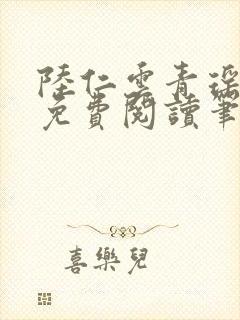 陸仁雲青瑤
免費閱讀筆
喜樂兒